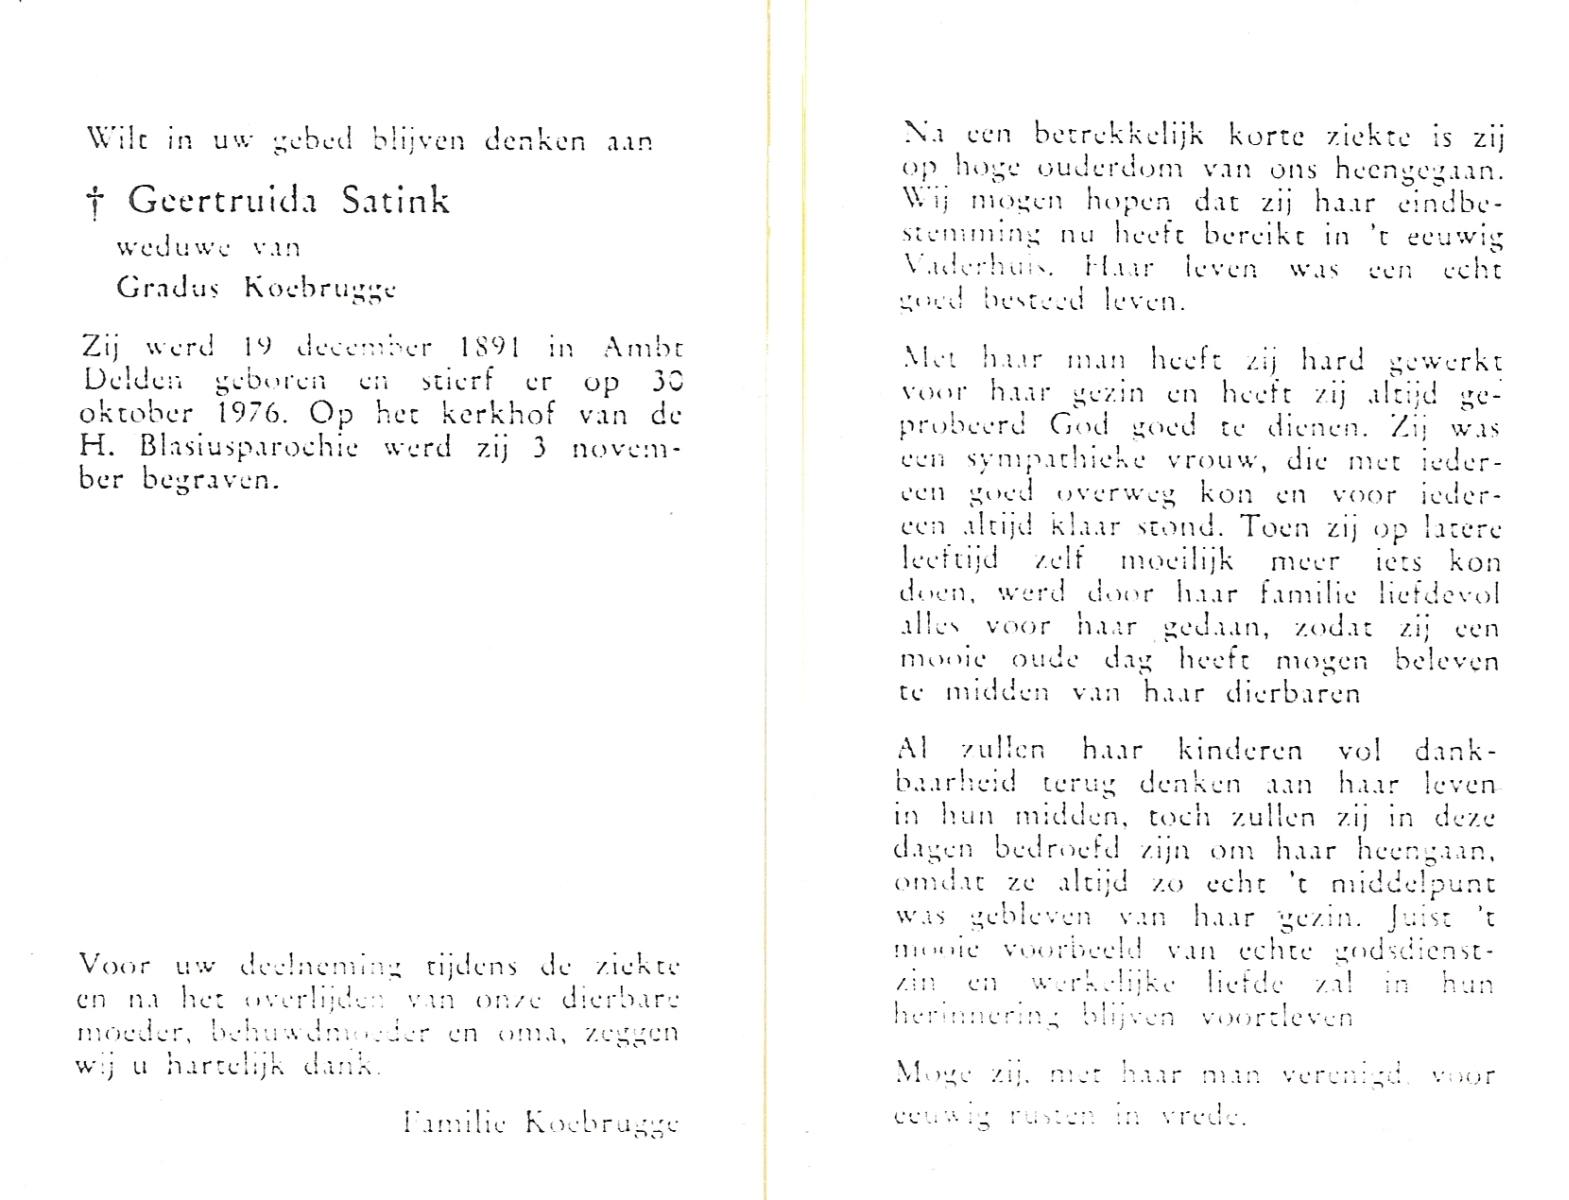 Wilt in uw gebed blijven denken aan
† Geertruida Satink
weduwe van
Gradus Koebrugge
Zij werd 19 december 1891 in Ambt
Delden geboren en stierf er op 30
oktober 1976. Op het kerkhof van de
H. Blasiusparochie werd zij 3 novem-
ber begraven.
Voor uw deelneming tijdens de ziekte
en na het overlijden van onze dierbare
moeder, behuwdmoeder en oma, zeggen
wij u hartelijk dank.
Familie Koebrugge
Na een betrekkelijk korte ziekte is zij
op hoge ouderdom van ons heengegaan.
Wij mogen hopen dat zij haar eindbe-
stemming nu heeft bereikt in 't eeuwig
Vaderhuis. Haar leven was een echt
goed besteed leven.
Met haar man heeft zij hard gewerkt
voor haar gezin en heeft zij altijd ge-
probeerd God goed te dienen. Zij was
een sympathieke vrouw, die met ieder-
een goed overweg kon en voor ieder-
een altijd klaar stond. Toen zij op latere
leeftijd zelf moeilijk meer iets kon
doen, werd door haar familie liefdevol
alles voor haar gedaan, zodat zij een
mooie oude dag heeft mogen beleven
te midden van haar dierbaren
Al zullen haar kinderen vol dank-
baarheid terug denken aan haar leven
in hun midden, toch zullen zij in deze
dagen bedroefd zijn om haar heengaan,
omdat ze altijd zo echt 't middelpunt
was gebleven van haar gezin. Juist 't
mooie voorbeeld van echte godsdienst-
zin en werkelijke liefde zal in hun
herinnering blijven voortleven
Moge zij, met haar man verenigd, voor
eeuwig rusten in vrede.